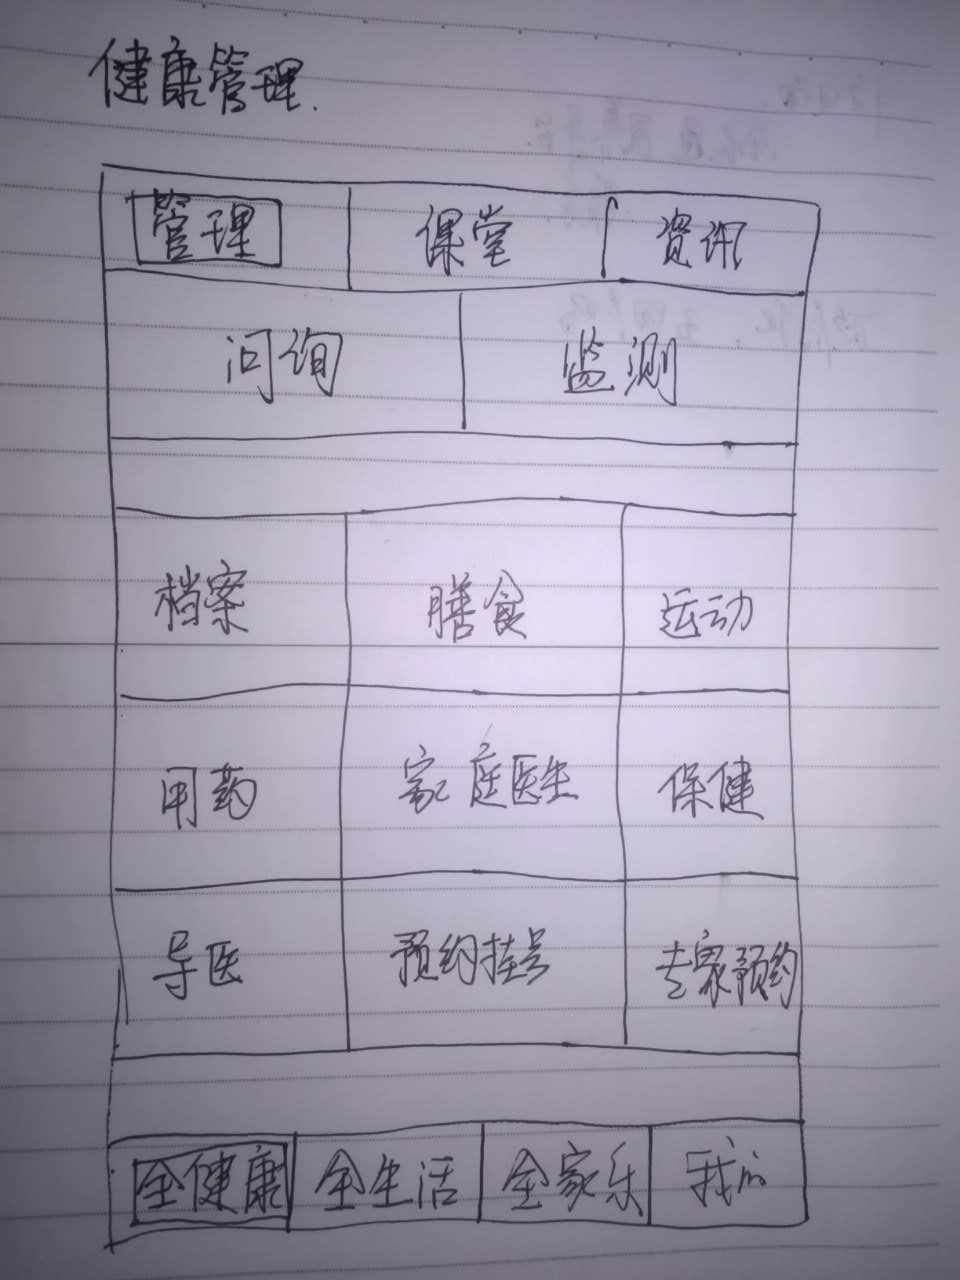 健康管理.
管理 课堂 资讯
问询 监测
档案 膳食 运动
用药 家庭医生 保健
导医 预约挂号 专家预约
全健康 全生活 全家乐 我的